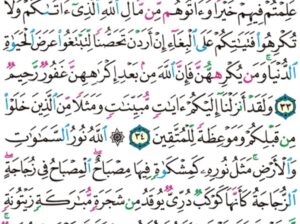 عَلِمْتُمْ فِيهِمْ خَيْرًا وَءَاتُوهُم مِّن مَّالِ ٱللَّهِ ٱلَّذِىٓ ءَاتَىٰكُمْ وَلَا
تُكْرِهُوا۟ فَتَيَـٰتِكُمْ عَلَى ٱلْبِغَآءِ إِنْ أَرَدْنَ تَحَصُّنًا لِّتَبْتَغُوا۟ عَرَضَ ٱلْحَيَوٰةِ
ٱلدُّنْيَا وَمَن يُكْرِههُّنَّ فَإِنَّ ٱللَّهَ مِنۢ بَعْدِ إِكْرَٰهِهِنَّ غَفُورٌ رَّحِيمٌ
٣٣ وَلَقَدْ أَنزَلْنَآ إِلَيْكُمْ ءَايَـٰتٍ مُّبَيِّنَـٰتٍ وَمَثَلًا مِّنَ ٱلَّذِينَ خَلَوْا۟
مِن قَبْلِكُمْ وَمَوْعِظَةً لِّلْمُتَّقِينَ ٣٤ ۞ ٱللَّهُ نُورُ ٱلسَّمَـٰوَٰتِ
وَٱلْأَرْضِ مَثَلُ نُورِهِۦ كَمِشْكَوٰةٍ فِيهَا مِصْبَاحٌ ٱلْمِصْبَاحُ فِى زُجَاجَةٍ
ٱلزُّجَاجَةُ كَأَنَّهَا كَوْكَبٌ دُرِّىٌّ يُوقَدُ مِن شَجَرَةٍ مُّبَـٰرَكَةٍ زَيْتُونَةٍ